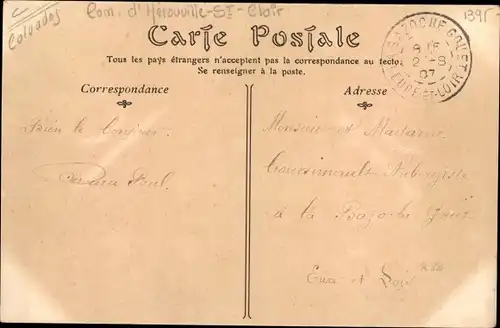 Calvados
Com. d'Hérouville-St-Clair
1395
Carte Postale
Tous les pays étrangers n'acceptent pas la correspondance au recto.
Se renseigner à la poste.
Correspondance
Adresse
BAZOCHE GOUET
2 -8
07
EURE-ET-LOIR
Bien le bonjour.
Paul.
Monsieur et Madame
Aubergiste
à la Bazoche Gouet
Eure et Loir